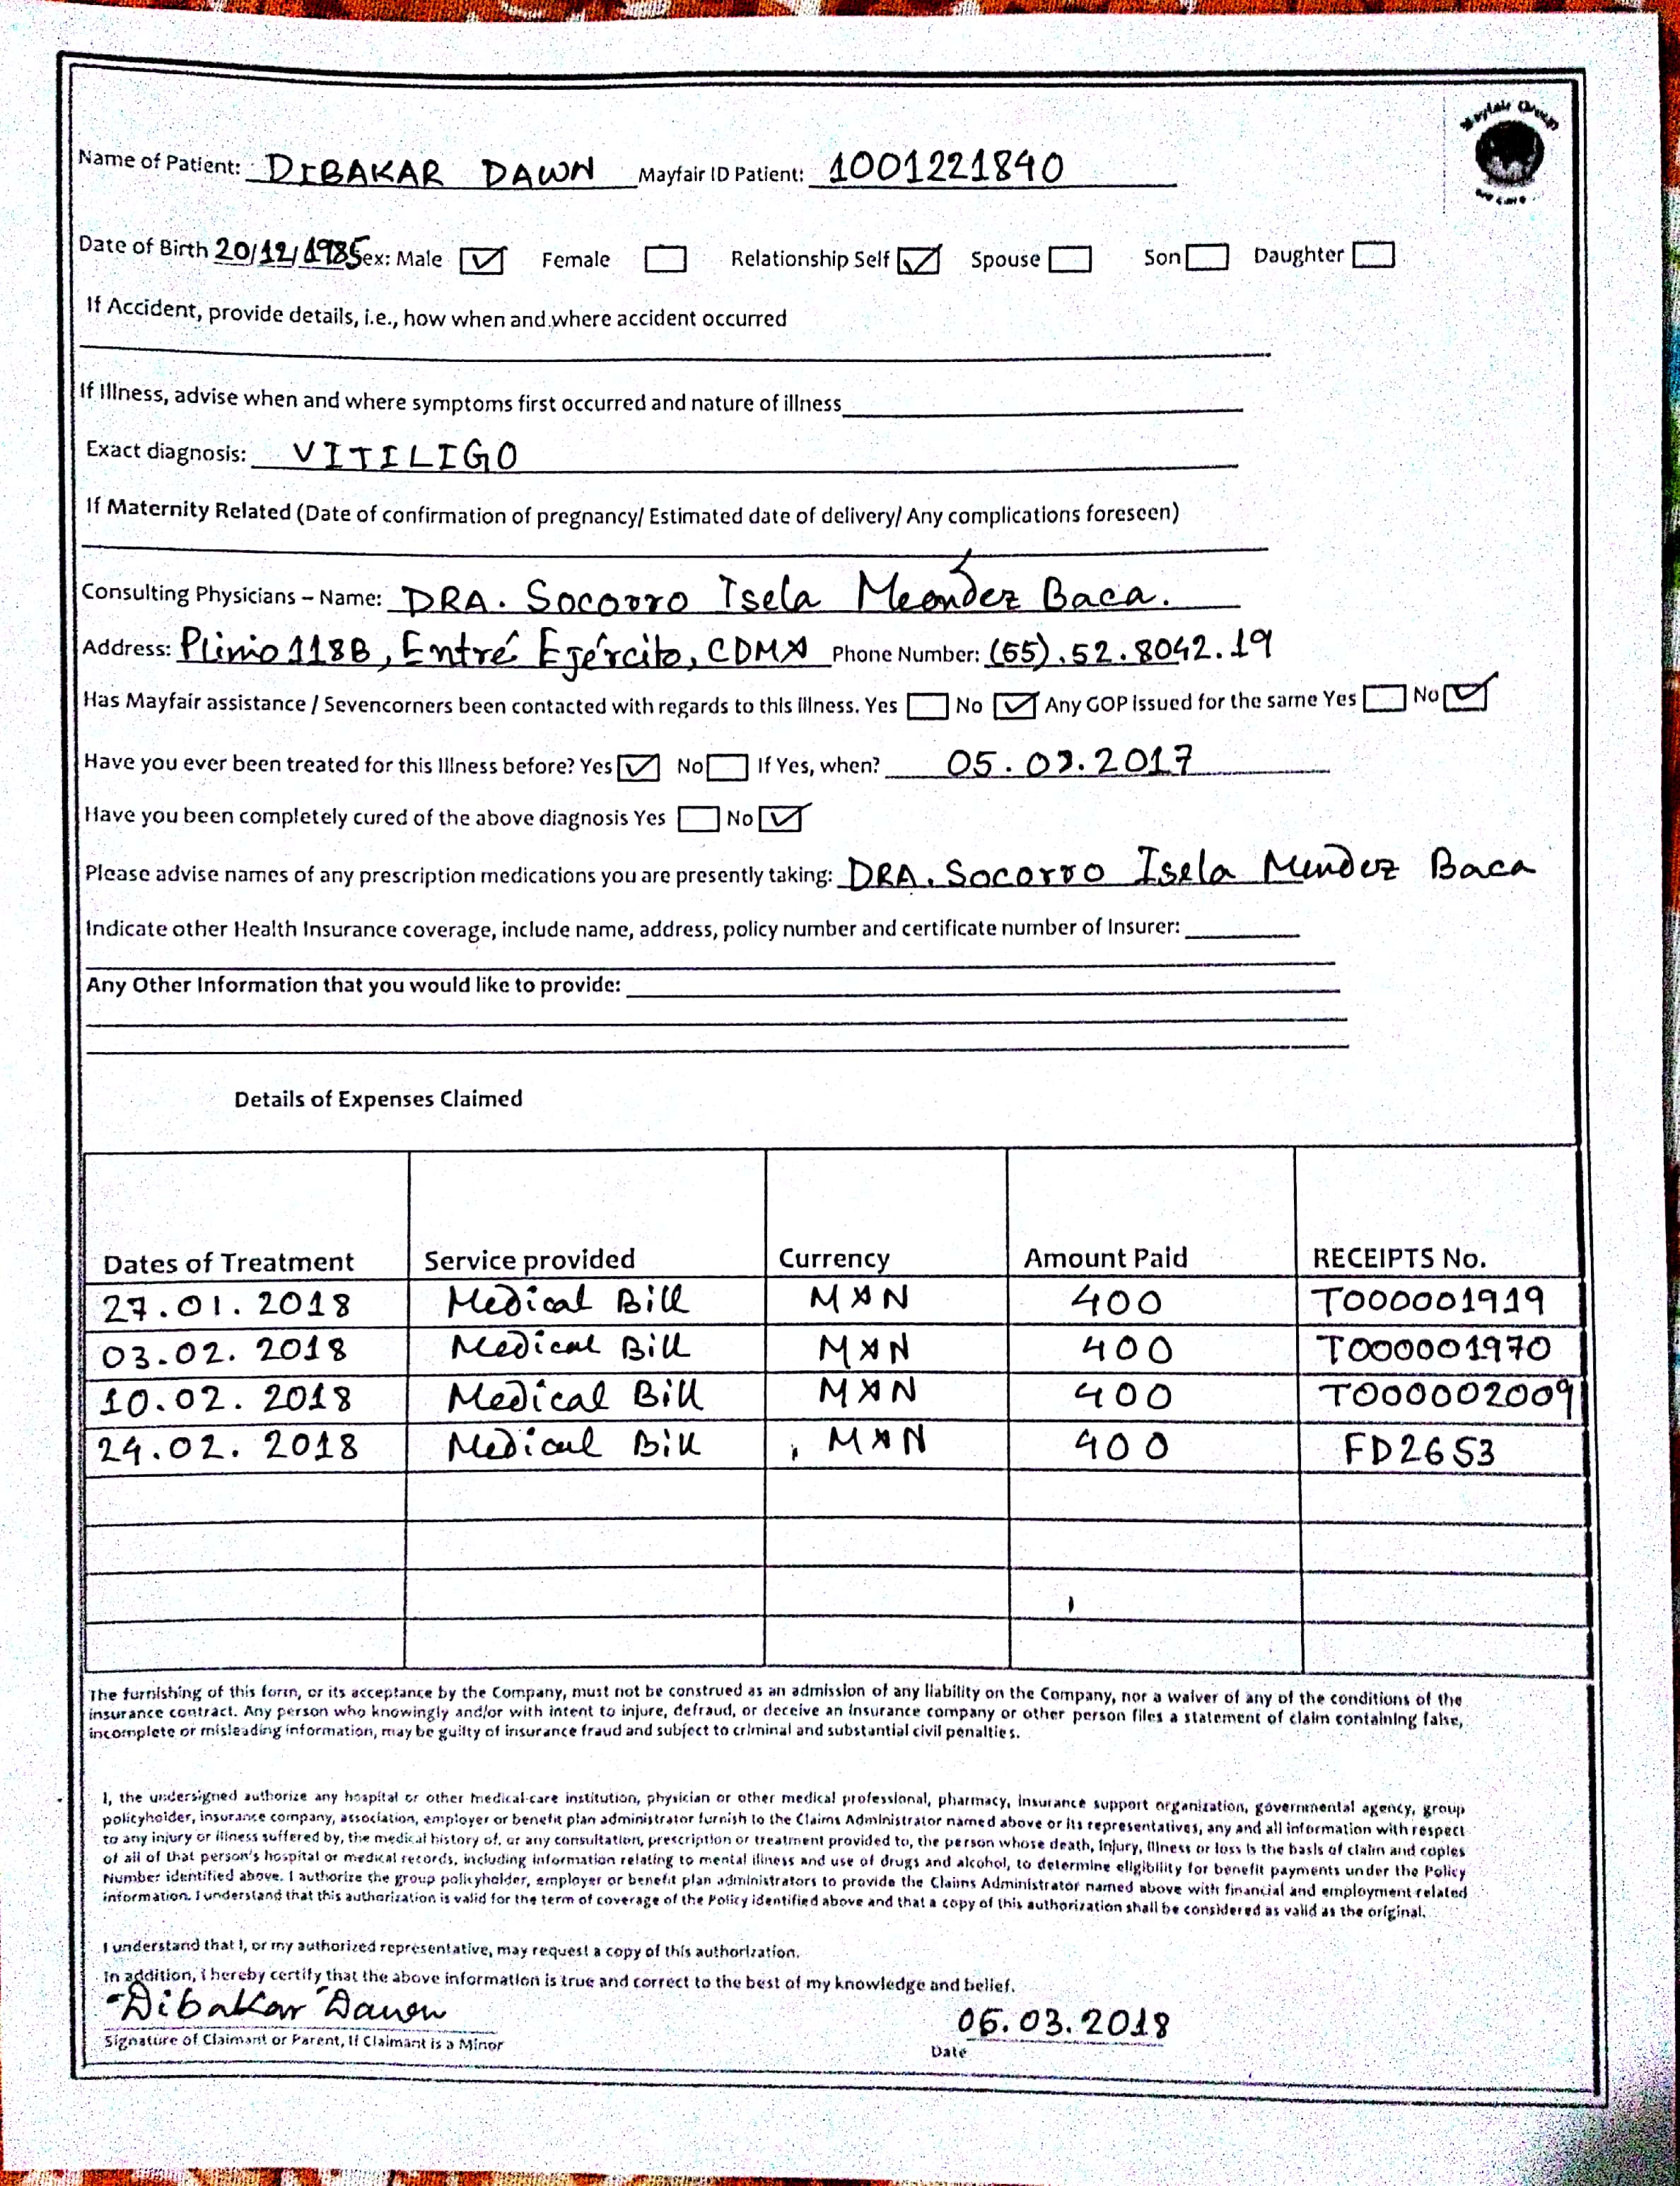 Mayfair Group
We Care
Name of Patient: DIBAKAR DAWN Mayfair ID Patient: 1001221840
Date of Birth 20/12/1985 Sex: Male ☑ Female ☐ Relationship Self ☑ Spouse ☐ Son ☐ Daughter ☐
If Accident, provide details, i.e., how when and where accident occurred
If Illness, advise when and where symptoms first occurred and nature of illness
Exact diagnosis: VITILIGO
If Maternity Related (Date of confirmation of pregnancy/ Estimated date of delivery/ Any complications foreseen)
Consulting Physicians – Name: DRA. Socorro Isela Meéndez Baca.
Address: Plinio 118B, Entré Ejército, CDMX Phone Number: (55).52.8042.19
Has Mayfair assistance / Sevencorners been contacted with regards to this illness. Yes ☐ No ☑ Any GOP issued for the same Yes ☐ No ☑
Have you ever been treated for this Illness before? Yes ☑ No ☐ If Yes, when? 05.03.2017
Have you been completely cured of the above diagnosis Yes ☐ No ☑
Please advise names of any prescription medications you are presently taking: DRA. Socorro Isela Mendez Baca
Indicate other Health Insurance coverage, include name, address, policy number and certificate number of Insurer:
Any Other Information that you would like to provide:
Details of Expenses Claimed
Dates of Treatment Service provided Currency Amount Paid RECEIPTS No.
27.01.2018 Medical Bill MXN 400 T000001919
03.02.2018 Medical Bill MXN 400 T000001970
10.02.2018 Medical Bill MXN 400 T000002009
24.02.2018 Medical Bill MXN 400 FD2653
The furnishing of this form, or its acceptance by the Company, must not be construed as an admission of any liability on the Company, nor a waiver of any of the conditions of the
insurance contract. Any person who knowingly and/or with intent to injure, defraud, or deceive an insurance company or other person files a statement of claim containing false,
incomplete or misleading information, may be guilty of insurance fraud and subject to criminal and substantial civil penalties.
I, the undersigned authorize any hospital or other medical-care institution, physician or other medical professional, pharmacy, insurance support organization, governmental agency, group
policyholder, insurance company, association, employer or benefit plan administrator furnish to the Claims Administrator named above or its representatives, any and all information with respect
to any injury or illness suffered by, the medical history of, or any consultation, prescription or treatment provided to, the person whose death, injury, illness or loss is the basis of claim and copies
of all of that person's hospital or medical records, including information relating to mental illness and use of drugs and alcohol, to determine eligibility for benefit payments under the Policy
Number identified above. I authorize the group policyholder, employer or benefit plan administrators to provide the Claims Administrator named above with financial and employment related
information. I understand that this authorization is valid for the term of coverage of the Policy identified above and that a copy of this authorization shall be considered as valid as the original.
I understand that I, or my authorized representative, may request a copy of this authorization.
In addition, I hereby certify that the above information is true and correct to the best of my knowledge and belief.
Dibakar Dawn 06.03.2018
Signature of Claimant or Parent, If Claimant is a Minor Date